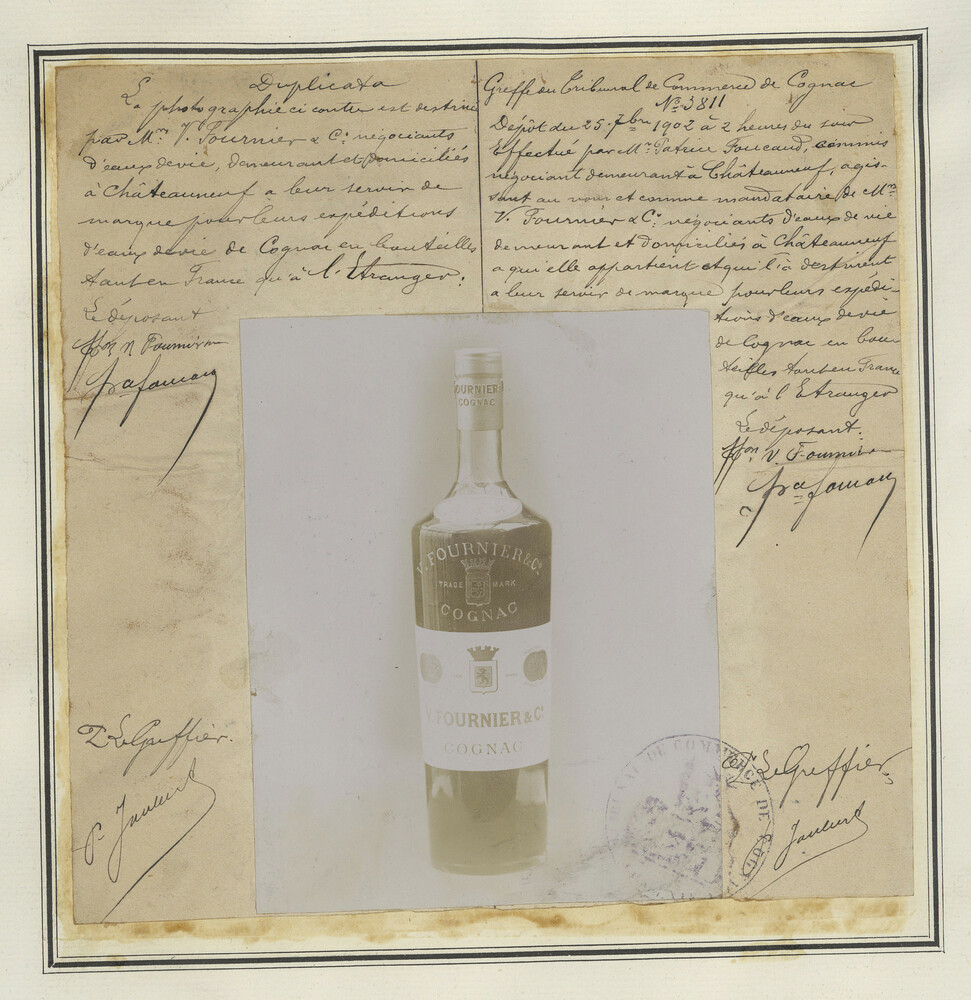 Duplicata
La photographie ci contre est destinée
par Mrs V. Fournier & Cie négociants
d'eaux de vie, demeurant et domiciliés
à Châteauneuf a leur servir de
marque pour leurs expéditions
d'eaux de vie de Cognac en bouteilles
tant en France qu'à l'Etranger.
Le déposant
Pon V Fournier
Le Greffier.
Greffe du Tribunal de Commerce de Cognac
No 3811
Dépôt du 25. 7bre 1902 à 2 heures du soir
Effectué par Mr Patrice Foucaud, commis
négociant demeurant à Châteauneuf, agis-
sant au nom et comme mandataire de Mrs
V. Fournier & Cie négociants d'eaux de vie
demeurant et domiciliés à Châteauneuf
a qui elle appartient et qui l'à destinent
a leur servir de marque pour leurs expédi-
tions d'eaux de vie
de Cognac en bou-
teilles tant en France
qu'à l'Etranger
Le déposant.
Pon V. Fournier
Le Greffier
FOURNIER
COGNAC
V. FOURNIER & Co
TRADE MARK
COGNAC
V. FOURNIER & Co
COGNAC
TRIBUNAL DE COMMERCE DE COGNAC